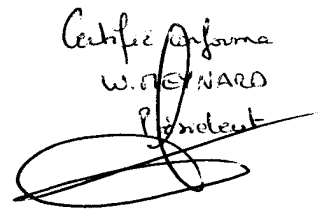 Certifié conforme
W. MEYNARD
Président